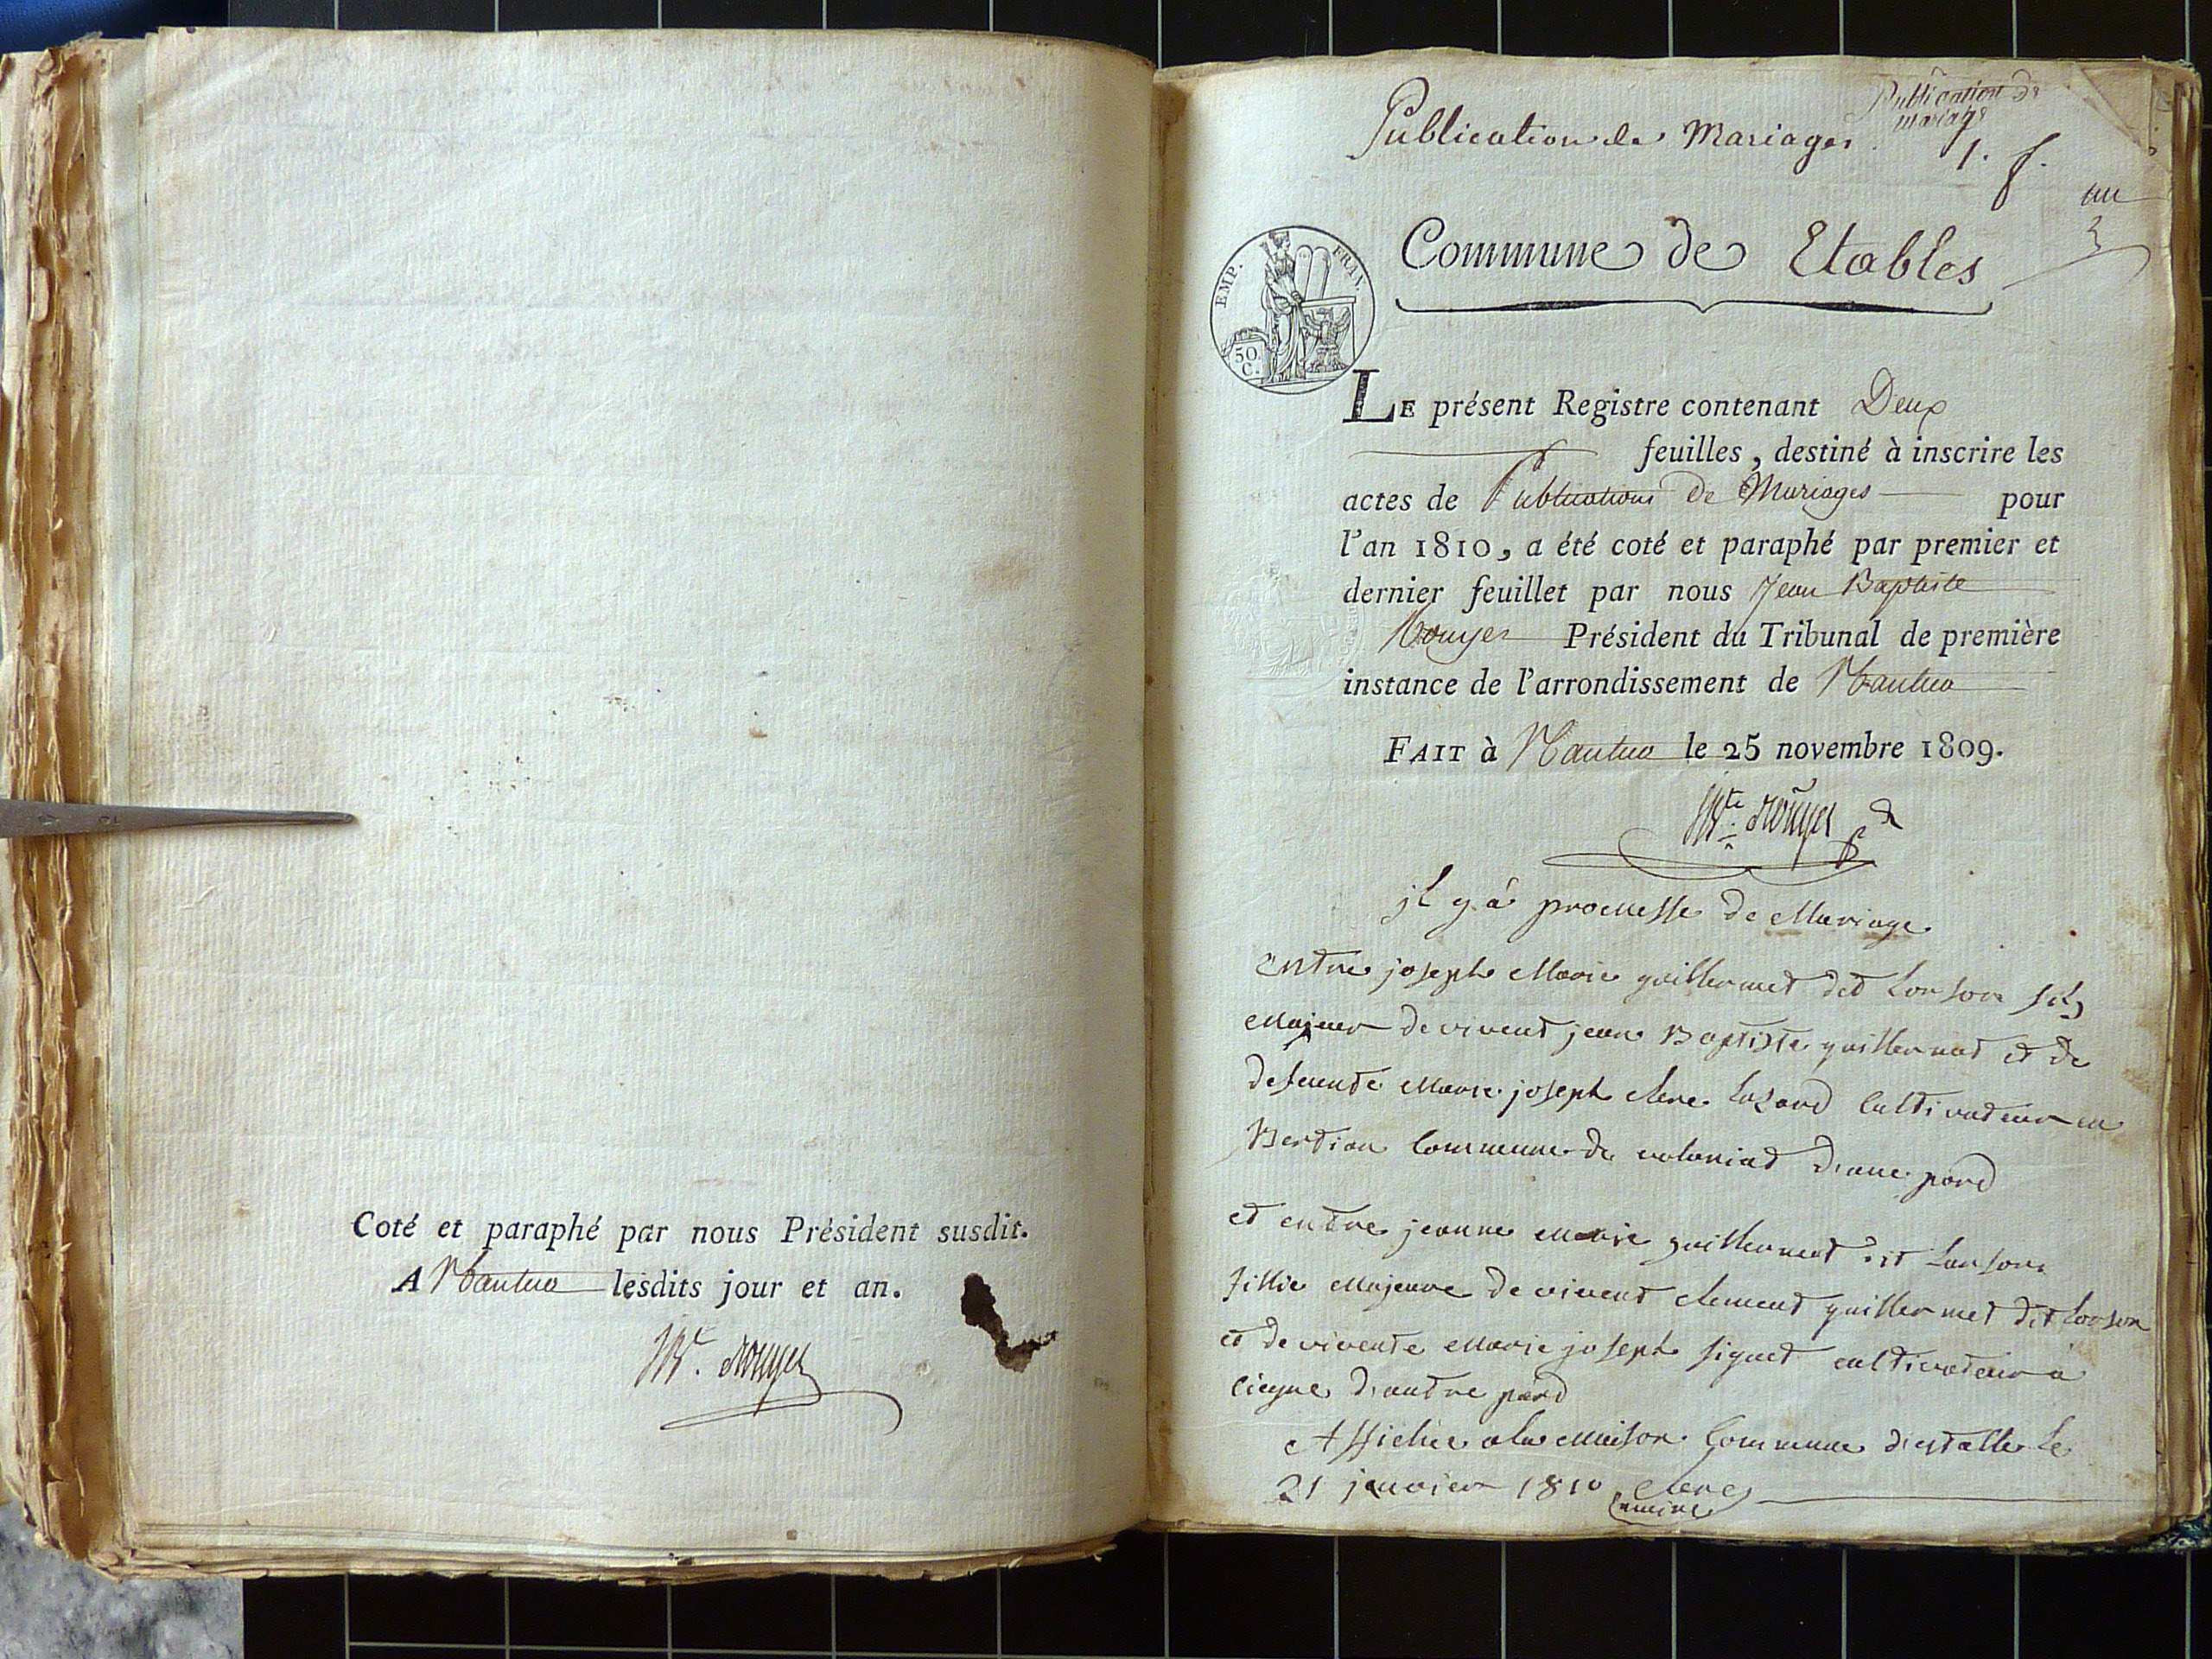 Coté et paraphé par nous Président susdit.
A Nantua lesdits jour et an.
J Bte. Rouyer
Publication de
mariage
Publication de Mariages
1. f.
un
EMP. FRAN.
50
C.
Commune de Etables
LE présent Registre contenant Deux
feuilles, destiné à inscrire les
actes de Publications de Mariages pour
l'an 1810, a été coté et paraphé par premier et
dernier feuillet par nous Jean Baptiste
Rouyer Président du Tribunal de première
instance de l'arrondissement de Nantua
FAIT à Nantua le 25 novembre 1809.
J Bte. Rouyer
jl y a promesse de Mariage
Entre joseph Marie guillermet dit Lonson fils
Majeur de vivent jean Baptiste guillermet et de
defeunte Marie joseph clerc Cultivateur en
Bertian Commune de voloniat d'une pard
et entre jeanne Marie guillermet dit Lonson
fillie Majeure de vivent clement guillermet dit Lonson
et de vivente Marie joseph signet cultivateur a
d'autre pard
Affichée a la Maison Commune d'estable le
21 janvier 1810 clerc
maire